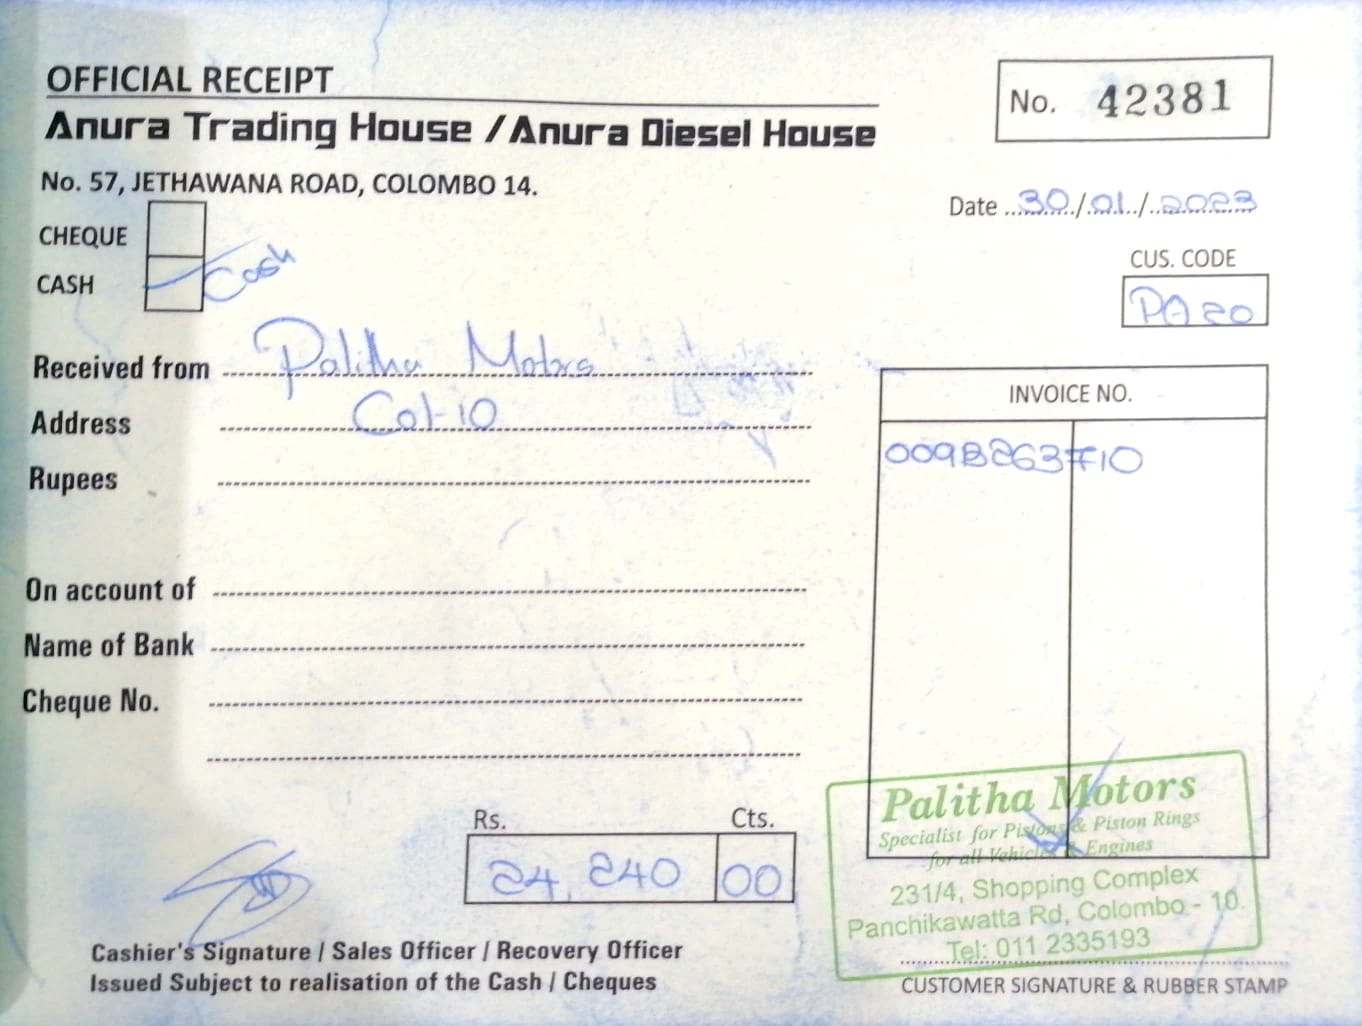 OFFICIAL RECEIPT
Anura Trading House / Anura Diesel House
No. 42381
No. 57, JETHAWANA ROAD, COLOMBO 14.
Date 30/01/2023
CHEQUE
CASH Cash
CUS. CODE
PA 20
Received from Palitha Motors
Address Col-10
Rupees
INVOICE NO.
009B263710
On account of
Name of Bank
Cheque No.
Rs. Cts.
24,240 00
Palitha Motors
Specialist for Pistons & Piston Rings
for all Vehicles & Engines
231/4, Shopping Complex
Panchikawatta Rd, Colombo - 10.
Tel: 011 2335193
Cashier's Signature / Sales Officer / Recovery Officer
Issued Subject to realisation of the Cash / Cheques
CUSTOMER SIGNATURE & RUBBER STAMP